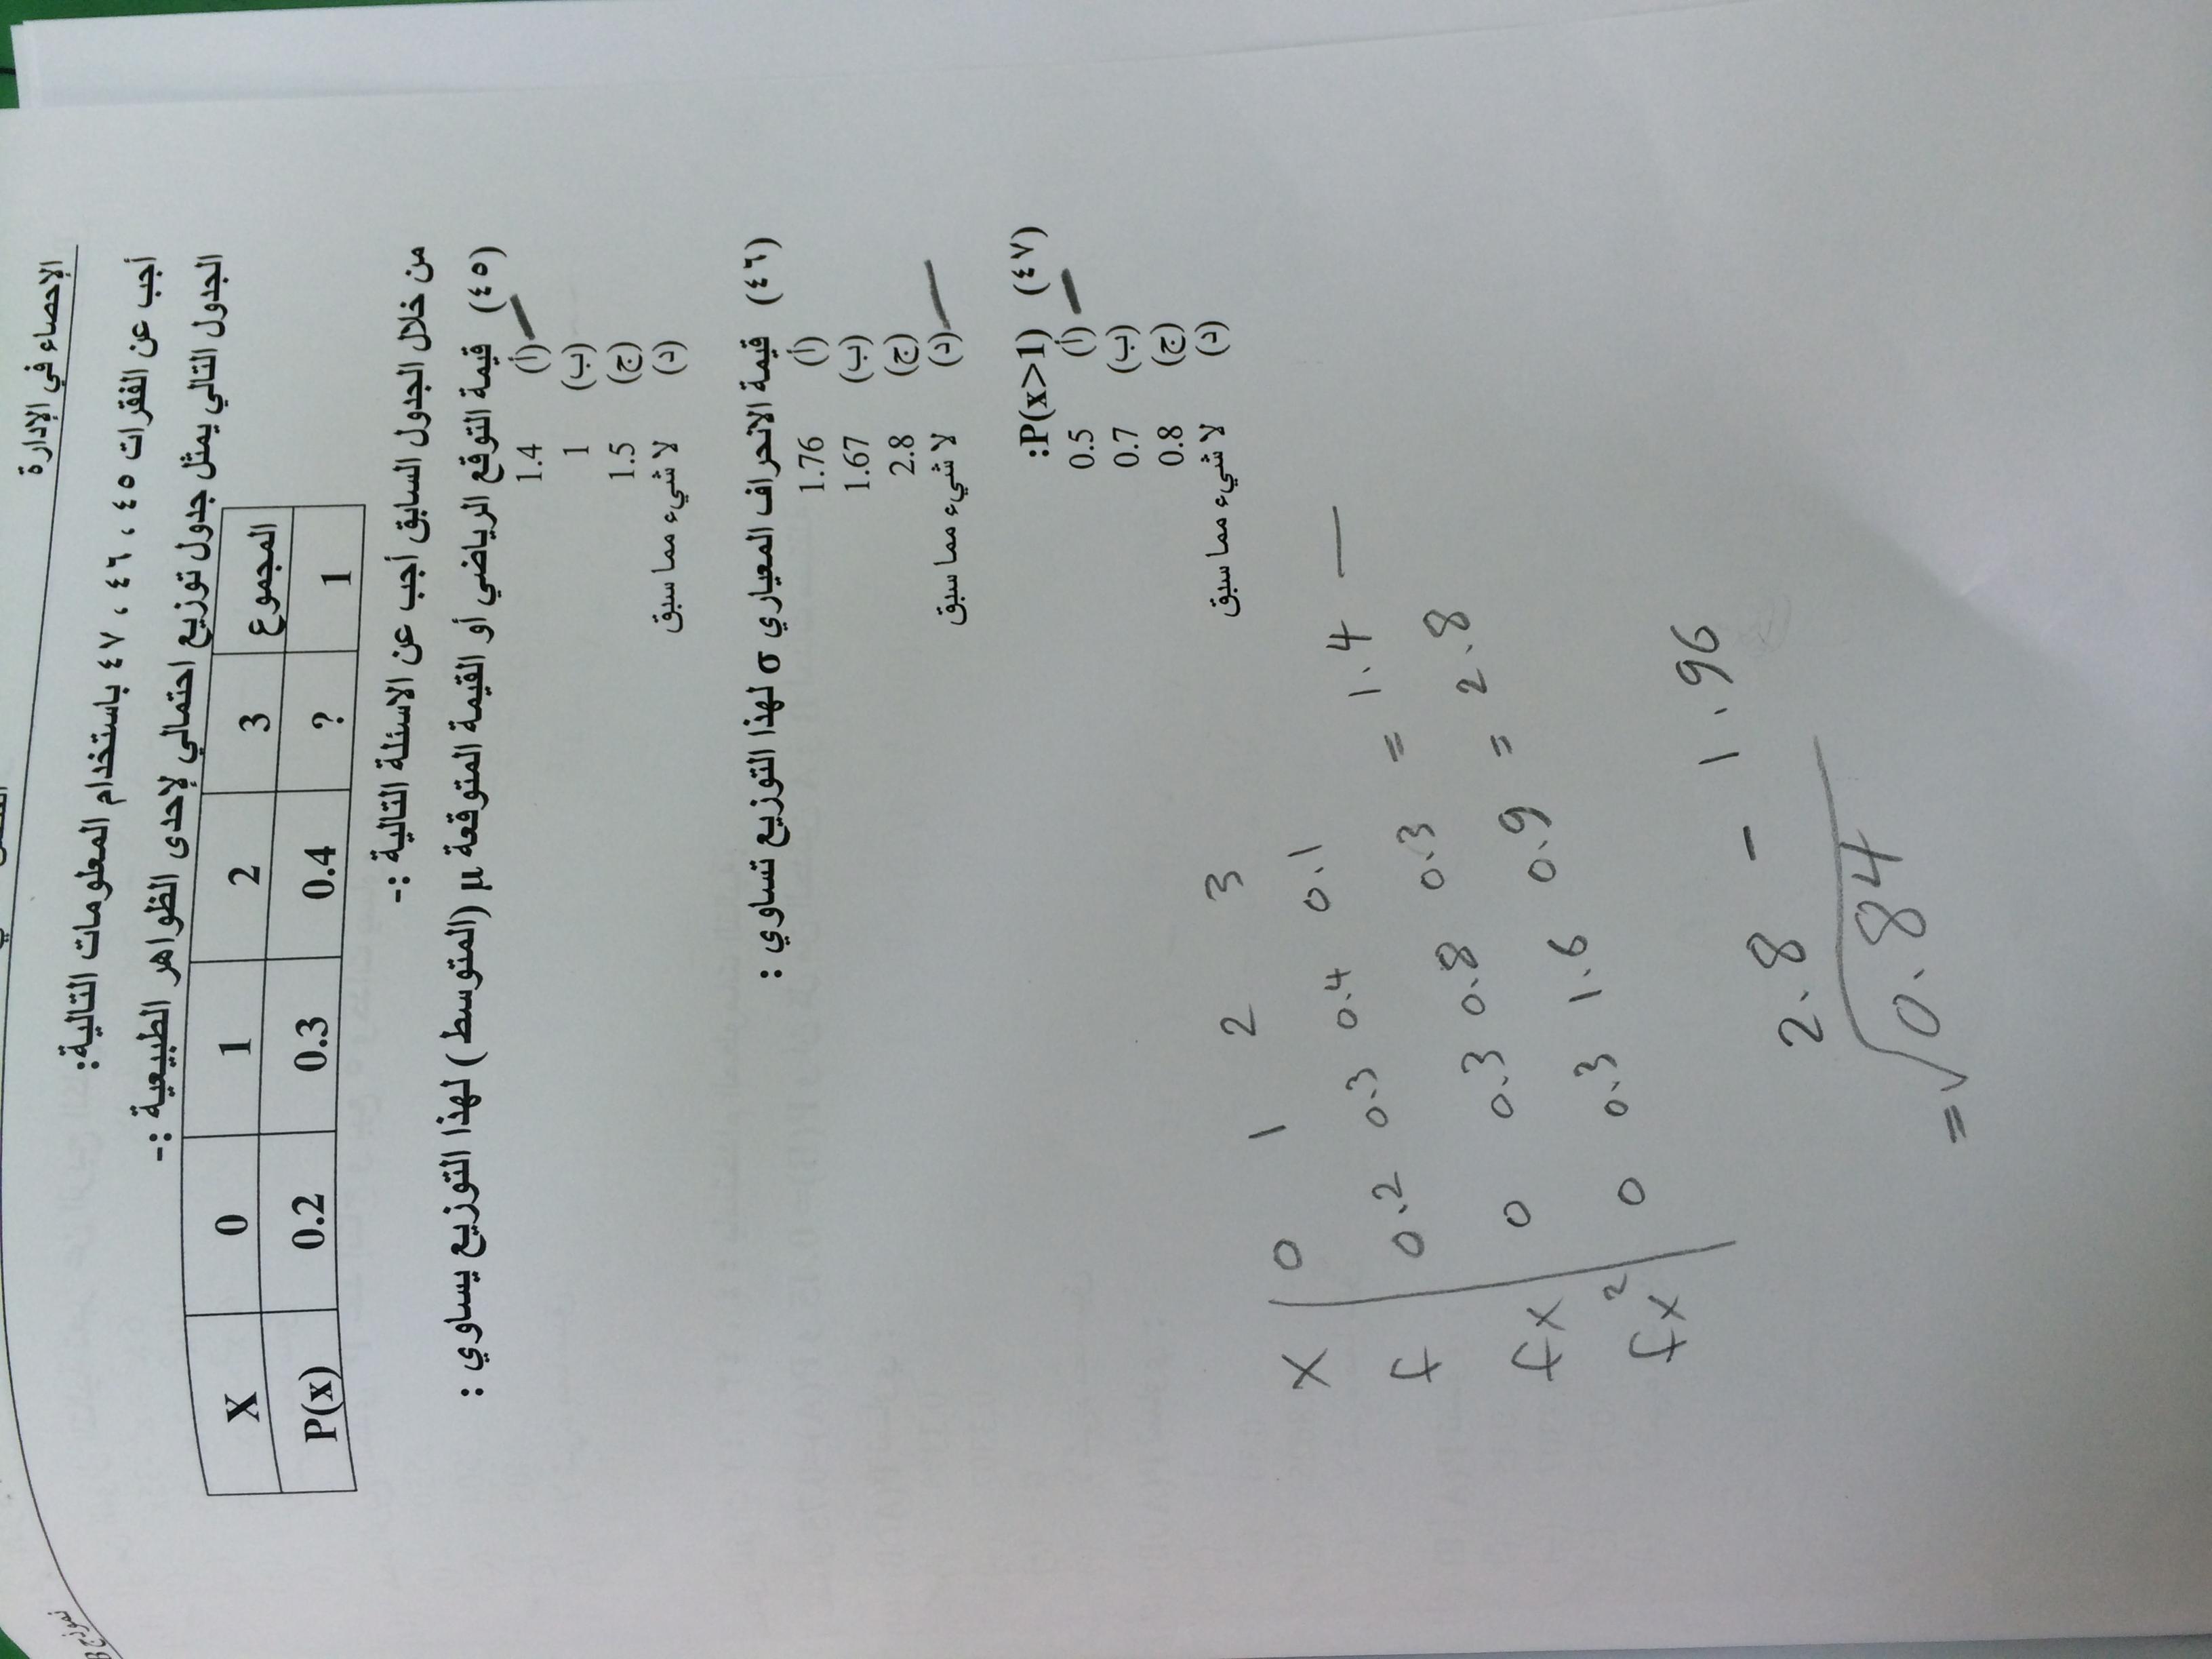 الإحصاء في الإدارة
نموذج B
أجب عن الفقرات ٤٥ ، ٤٦ ، ٤٧ باستخدام المعلومات التالية:
الجدول التالي يمثل جدول توزيع احتمالي لإحدى الظواهر الطبيعية :-
X 0 1 2 3 المجموع
P(x) 0.2 0.3 0.4 ? 1
من خلال الجدول السابق أجب عن الاسئلة التالية :-
(٤٥) قيمة التوقع الرياضي أو القيمة المتوقعة μ (المتوسط ) لهذا التوزيع يساوي :
(أ) 1.4
(ب) 1
(ج) 1.5
(د) لا شيء مما سبق
(٤٦) قيمة الانحراف المعياري σ لهذا التوزيع تساوي :
(أ) 1.76
(ب) 1.67
(ج) 2.8
(د) لا شيء مما سبق
(٤٧) P(x>1):
(أ) 0.5
(ب) 0.7
(ج) 0.8
(د) لا شيء مما سبق
x 0 1 2 3
f 0.2 0.3 0.4 0.1
fx 0 0.3 0.8 0.3 = 1.4
fx² 0 0.3 1.6 0.9 = 2.8
2.8 - 1.96
= √0.84